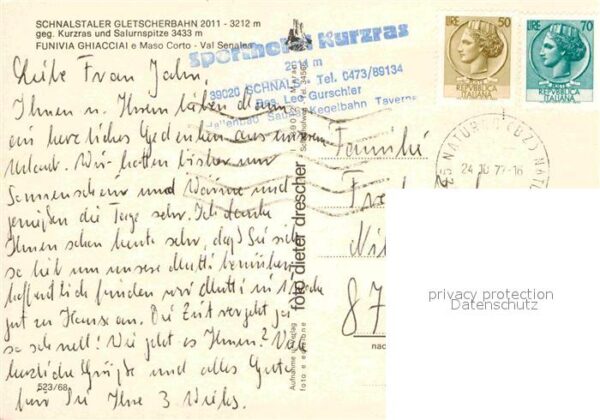 SCHNALSTALER GLETSCHERBAHN 2011 - 3212 m
geg. Kurzras und Salurnspitze 3433 m
FUNIVIA GHIACCIAI e Maso Corto - Val Senales
Sporthotel Kurzras
39020 SCHNALS Tel. 0473/89134
Bes. Leo Gurschler
Hallenbad Sauna Kegelbahn Taverne
LIRE 50
REPVBBLICA
ITALIANA
LIRE 70
REPVBBLICA
ITALIANA
NATURNS (BZ)
24.10.77-16
Liebe Frau Jahn,
Ihnen u. Ihren Lieben dann
ein herzliches Gedenken aus unserem
Urlaub. Wir hatten bisher nur
Sonnenschein und Wärme und
genießen die Tage sehr. Ich danke
Ihnen schon heute sehr, daß Sie sich
so lieb um unsere Mutti bemühen
hoffentlich finden wir Mutti in
gut zu Hause an. Die Zeit vergeht ja
so schnell! Wie geht es Ihnen? Viele
herzliche Grüße und alles Gute
für Sie Ihre 3
Familie
87
foto dieter drescher
Aufnahme und Verlag
foto e edizione
523/68
privacy protection
Datenschutz